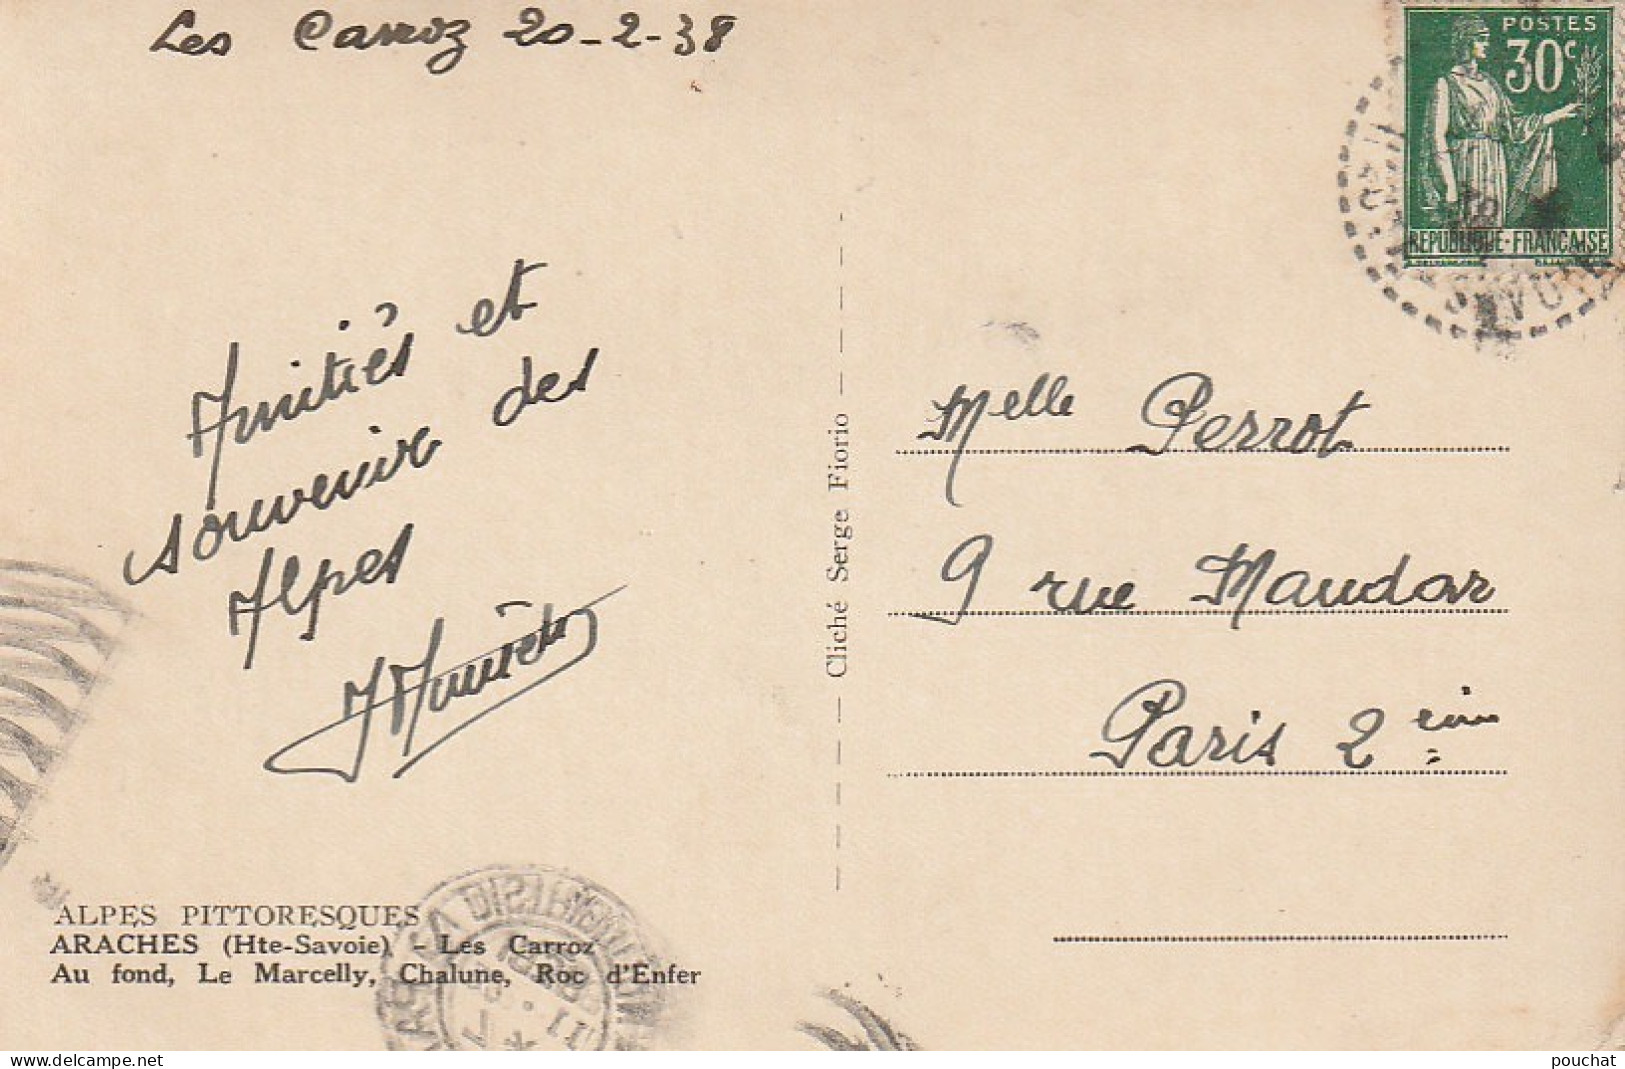 Les Carroz 20-2-38
POSTES
30c
REPUBLIQUE-FRANCAISE
Amitiés et
souvenir des
Alpes
Melle Perrot
9 rue Mandar
Paris 2 eim
Cliché Serge Fiorio
ALPES PITTORESQUES
ARACHES (Hte-Savoie) - Les Carroz
Au fond, Le Marcelly, Chalune, Roc d'Enfer
pouchat